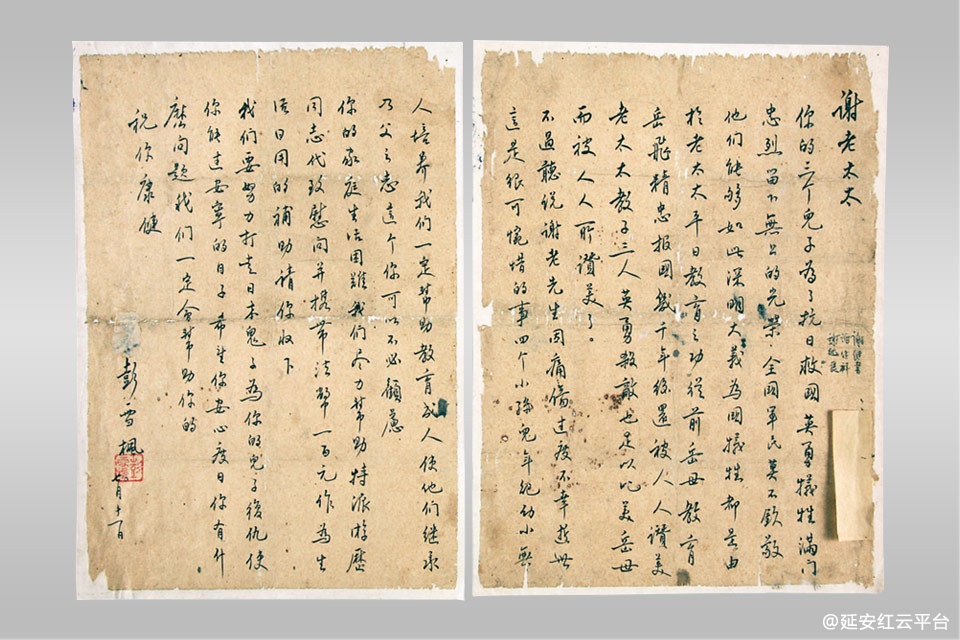 谢老太太
你的三个兒子為了抗日救國英勇犧牲满门
忠烈留下無上的光榮全國軍民莫不欽敬
他们能够如此深明大義為国犧牲都是由
於老太太平日教育之功從前岳母教育
岳飛精忠报國幾千年後還被人人讚美
老太太教子三人英勇殺敵也足以比美岳母
而被人人所讚美了。
不過聽说谢老先生因痛傷过度不幸逝世
這是很可惋惜的事四个小孫兒年纪幼小無
人培养我们一定幫助教育成人使他们继承
乃父之志這个你可以不必顧慮
你的家庭生活困難我们尽力幫助特派游歷
同志代致慰问并携带法幣一百元作為生
活日用的補助請你收下
我们要努力打走日本鬼子為你的兒子復仇使
你能过安寧的日子希望你安心度日你有什
麽问题我们一定会幫助你的
祝你康健
彭雪楓
七月十一日
@延安红云平台